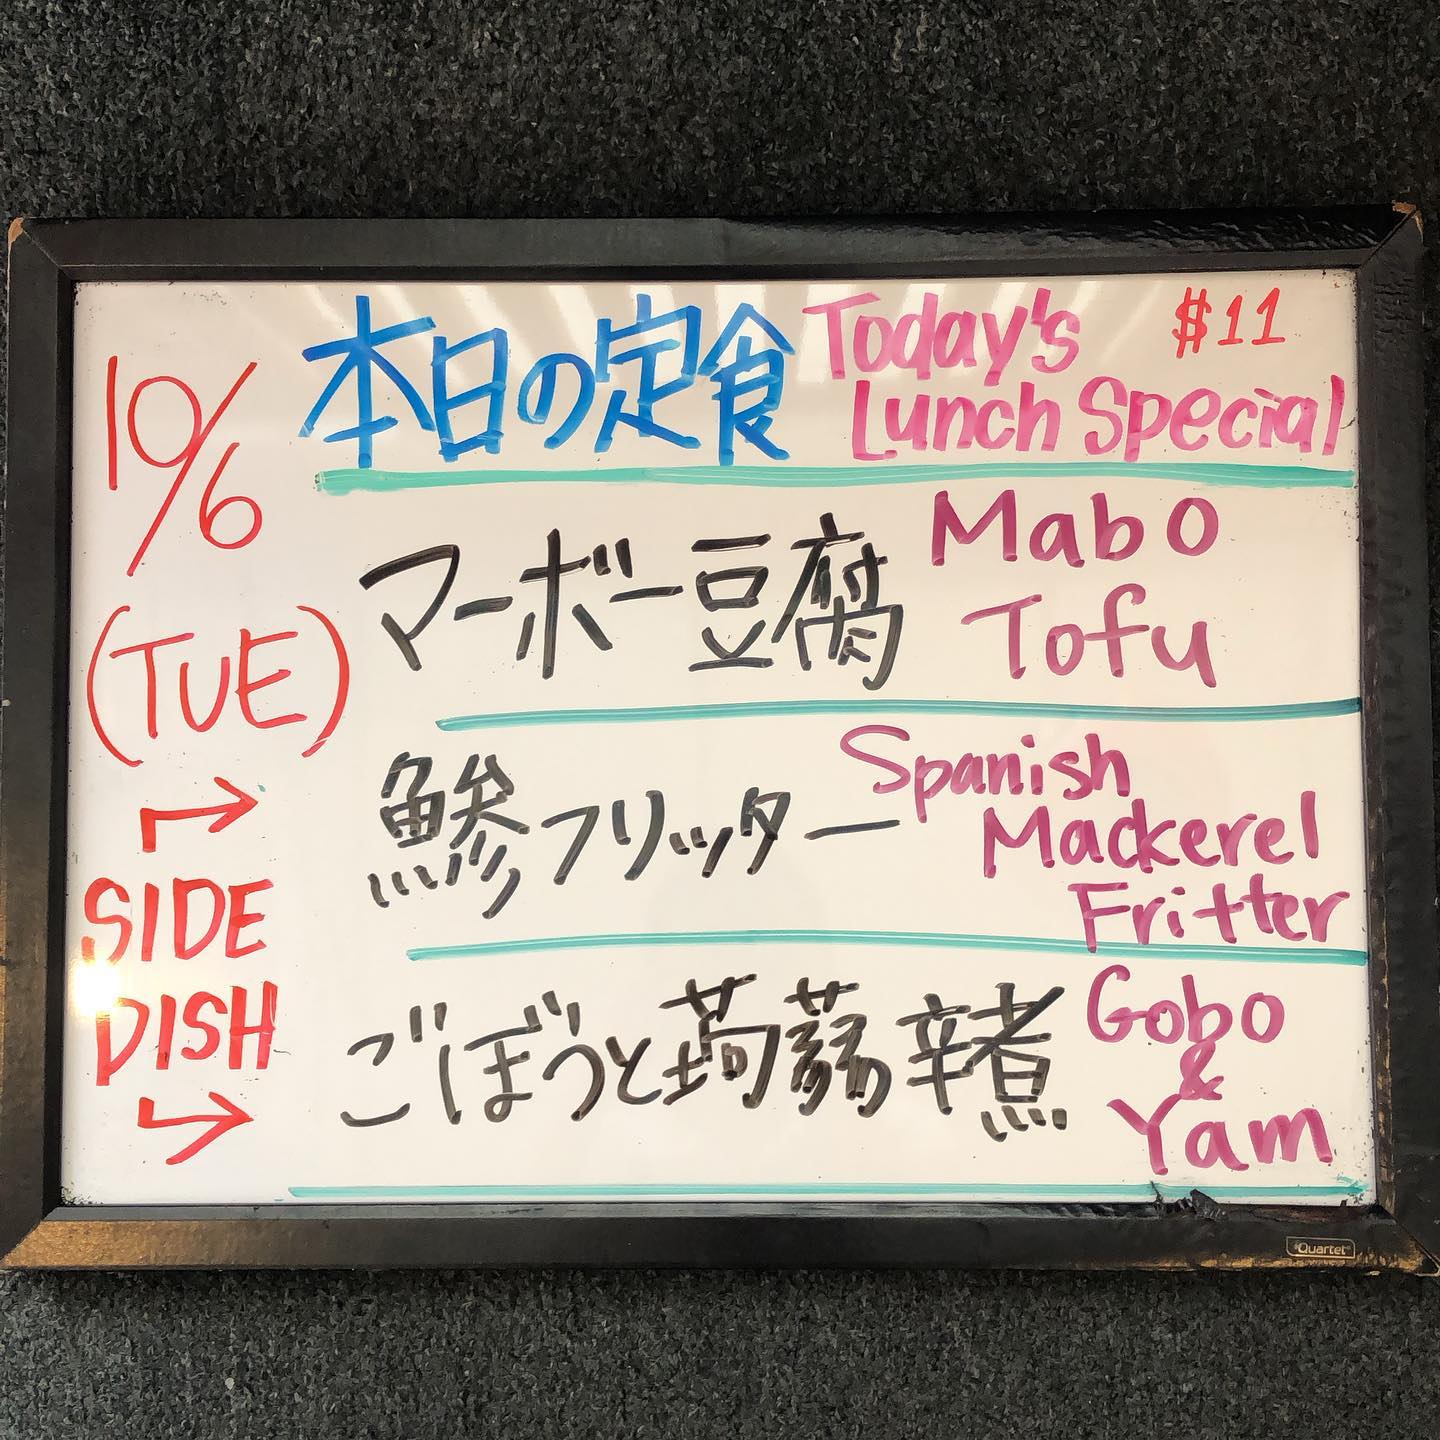 10/6
(TUE)
SIDE
DISH
本日の定食
Today's
Lunch Special
$11
マーボー豆腐
Mabo
Tofu
鯵フリッター
Spanish
Mackerel
Fritter
ごぼうと蒟蒻辛煮
Gobo
&
Yam
Quartet